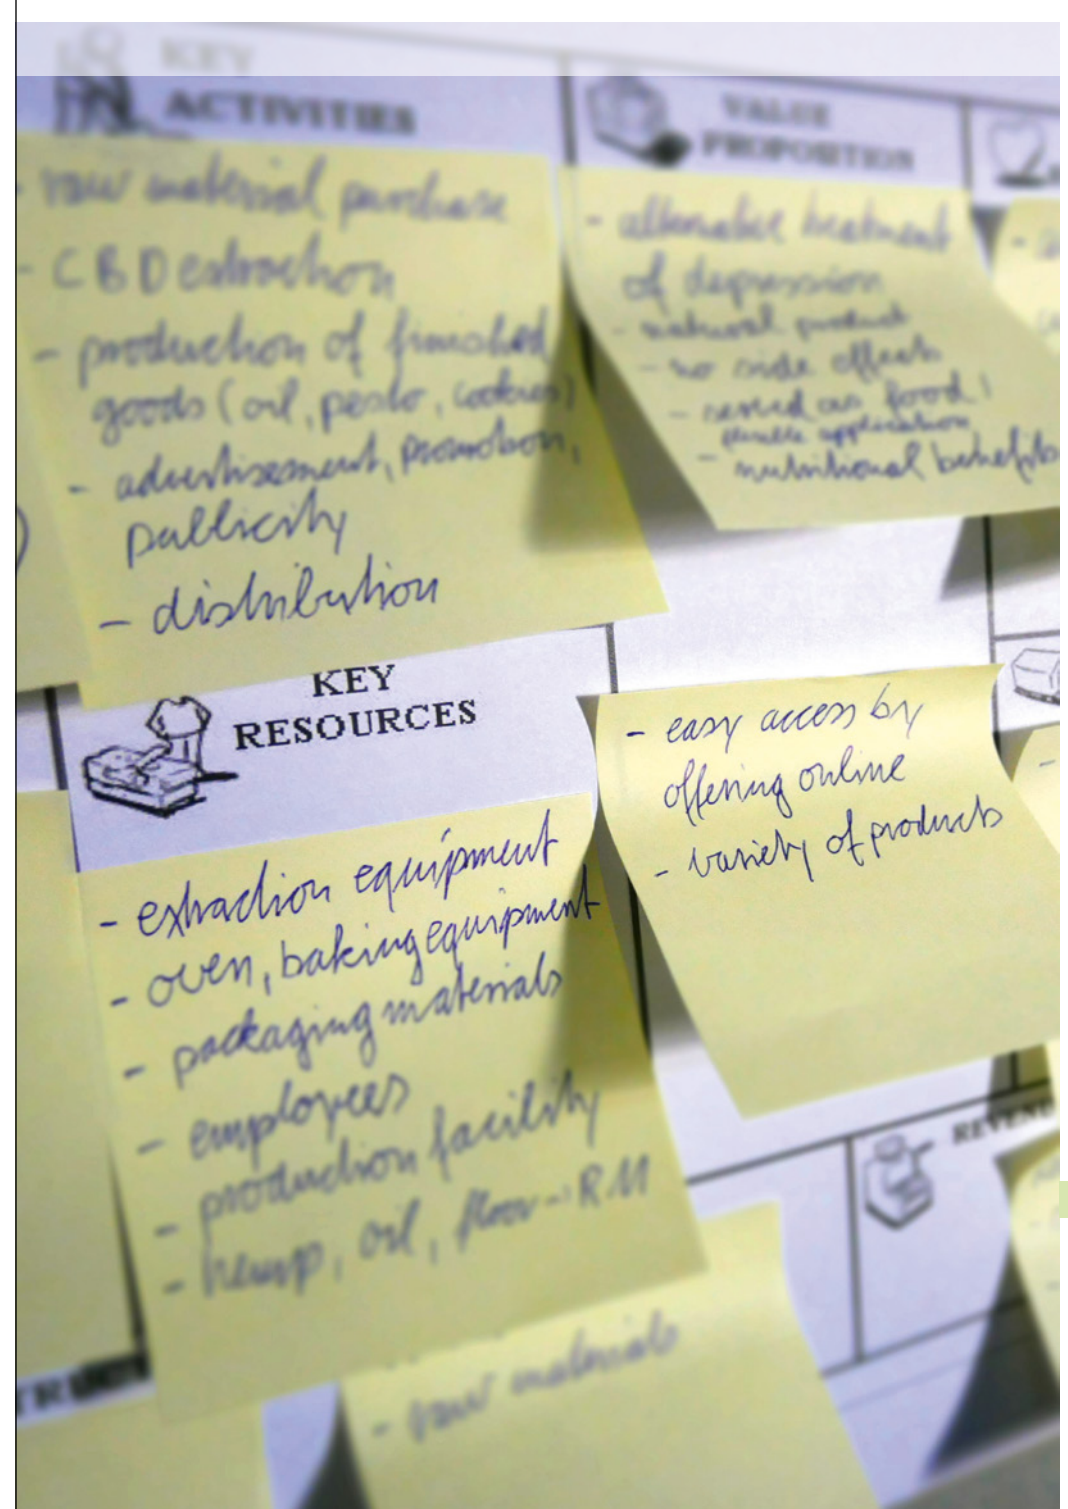 KEY
ACTIVITIES
- raw material purchase
- CBD extraction
- production of finished
goods (oil, pesto, cookies)
- advertisement, promotion,
publicity
- distribution
VALUE
PROPOSITION
- alternative treatment
of depression
- natural product
- no side effects
- served as food!
flexible application
- nutritional benefits
KEY
RESOURCES
- extraction equipment
- oven, baking equipment
- packaging materials
- employees
- production facility
- hemp, oil, floor → RM
- easy access by
offering online
- variety of products
REVENU
- raw materials